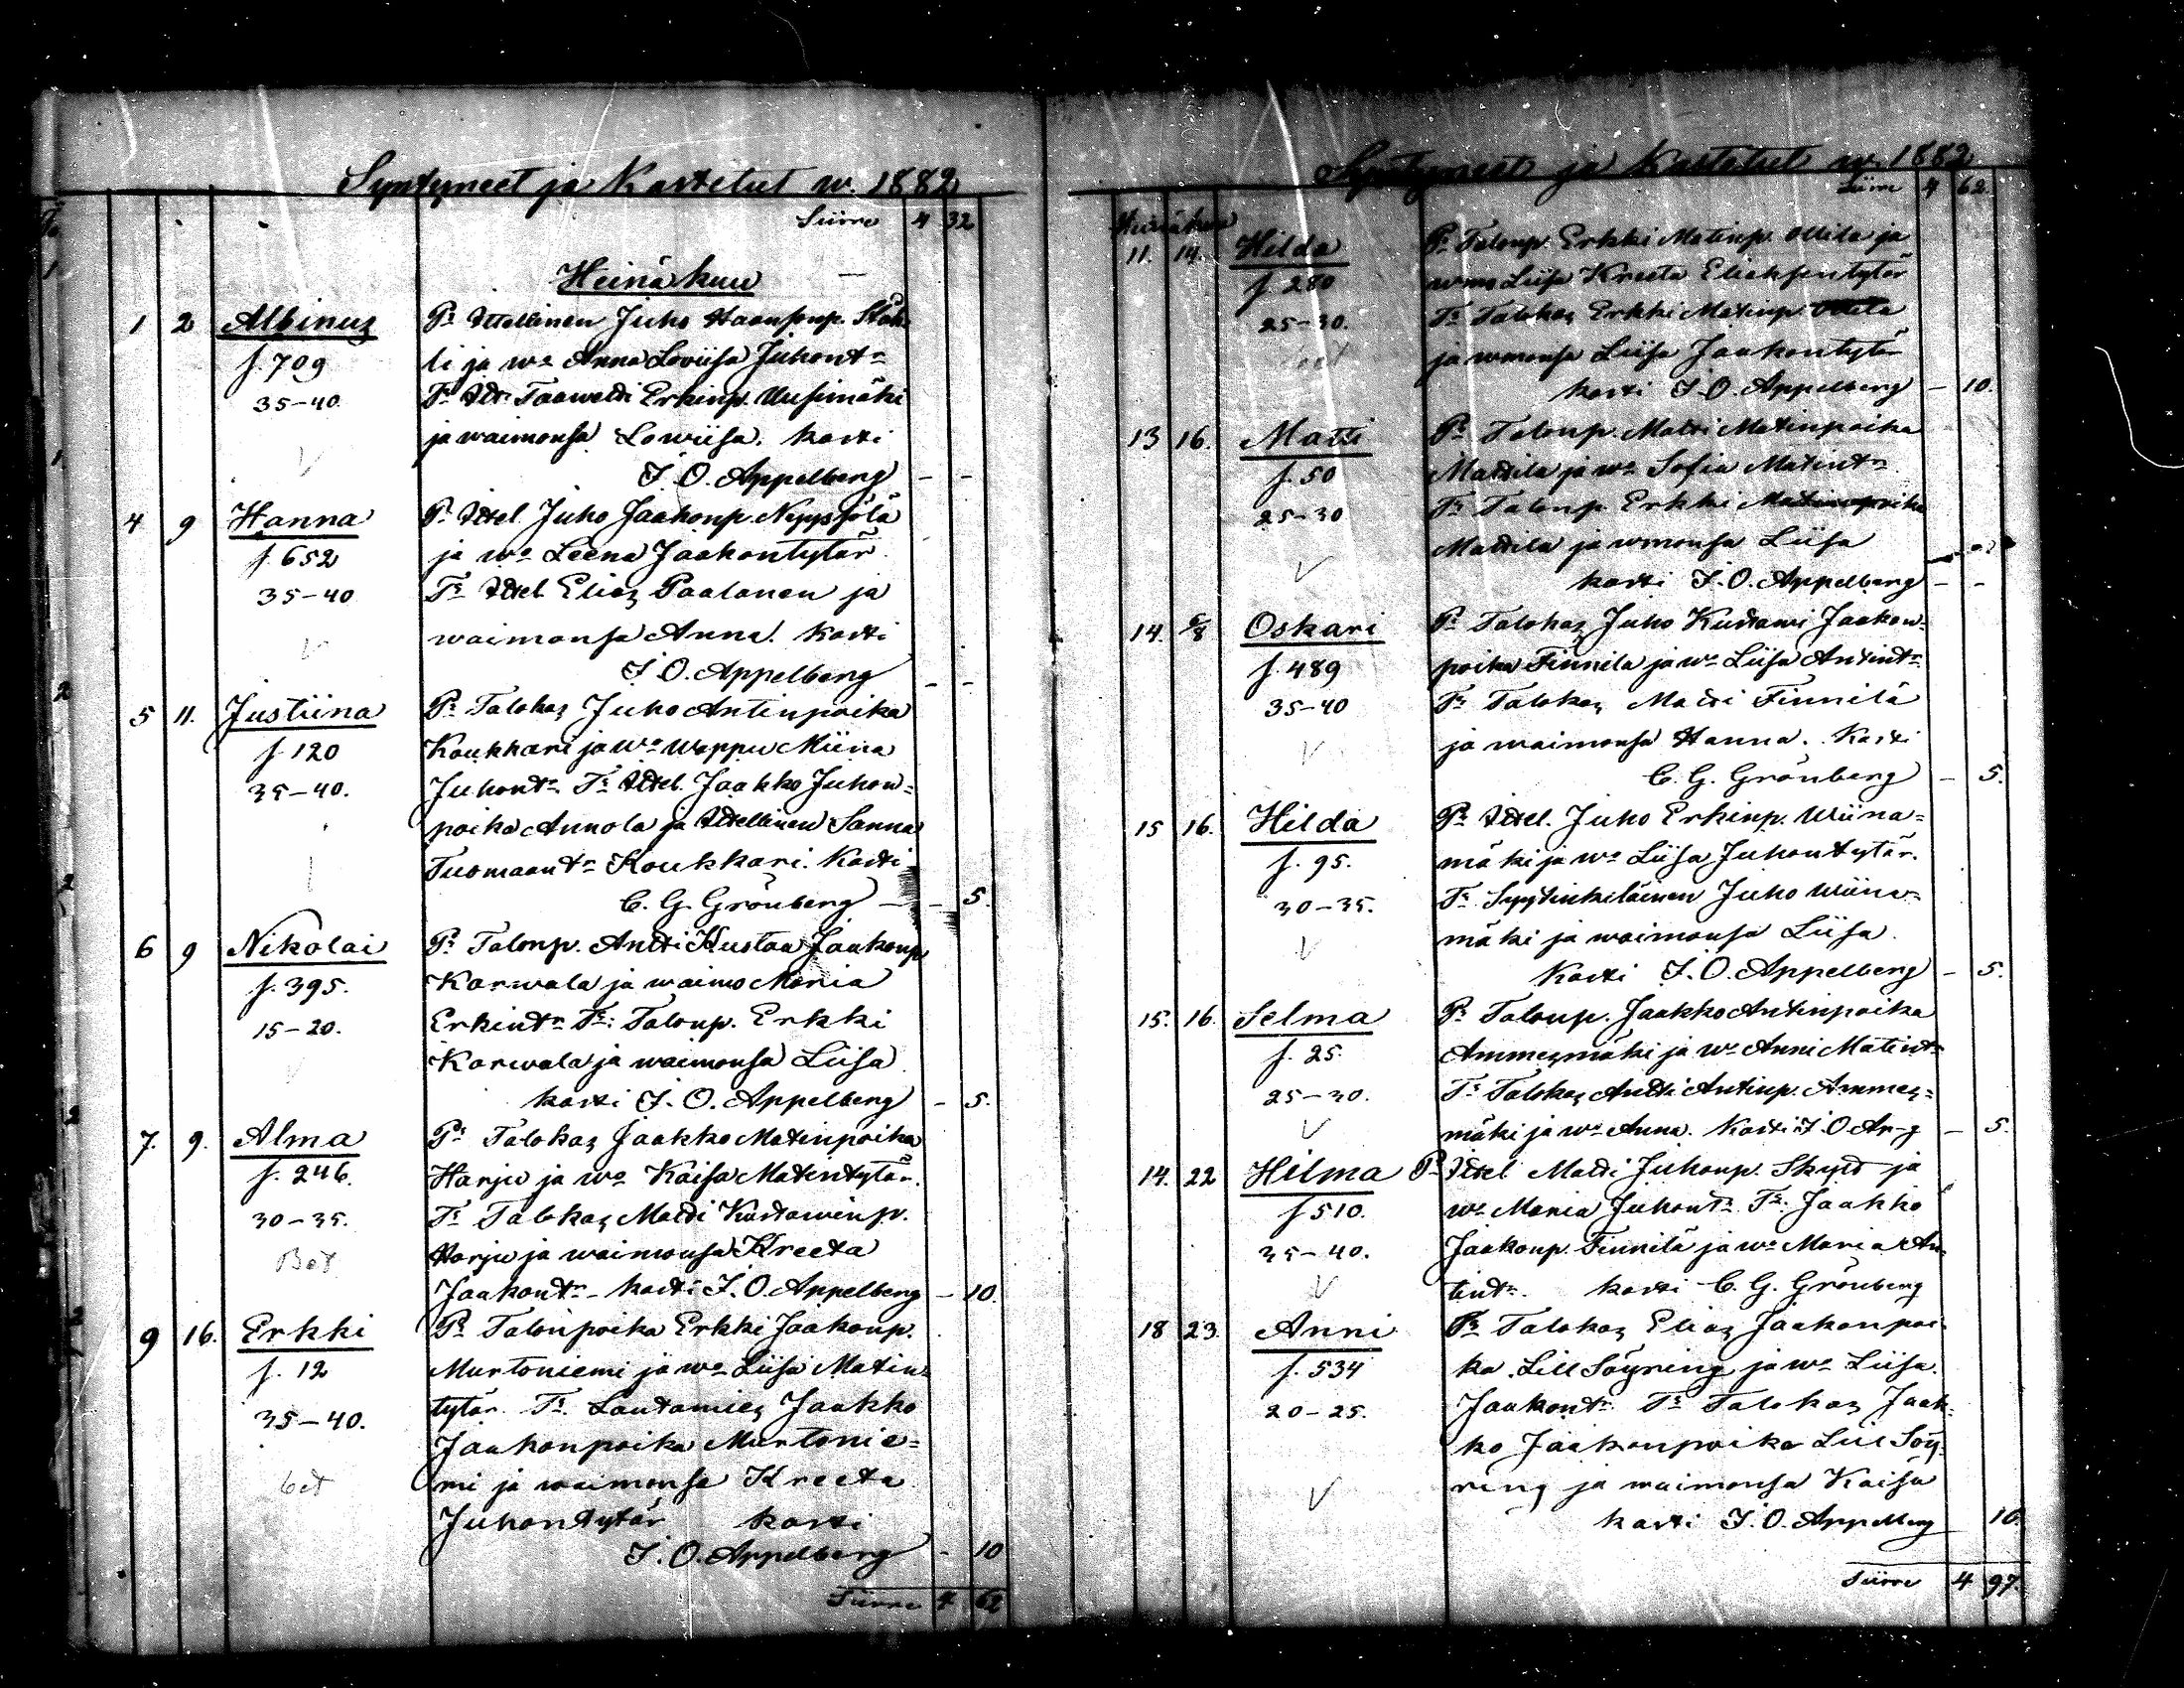 Syntyneet ja Kastetut w. 1882
Siirre 4 32
Heinäkuu
1 2 Albinus Pr Itsellinen Juho Haanp.
f. 709 li ja wo Anna Lowiisa Juhontr
35-40. Tr Its. Taawetti Erkinp. Uusimäki
ja waimonsa Lowiisa. kasti
J. O. Appelberg - -
4 9 Hanna Pr Itsel. Juho Jaakonp. Nyyssölä
f. 652 ja wo Leena Jaakontytär.
35-40 Tr Itsel. Elias Paalanen ja
waimonsa Anna. kasti
J. O. Appelberg - -
5 11. Justiina Pr Talokas Juho Antinpoika
f. 120 Koukkari ja wo Wappu Miina
35-40. Juhontr Tr Itsel. Jaakko Juhon=
poika Annola ja Itsellinen Sanna
Tuomaantr Koukkari. Kasti
C. G. Grönberg - - 5.
6 9 Nikolai Pr Talonp. Antti Kustaa Jaakonp
f. 395. Karwala ja waimo Maria
15-20. Erkintr Tr: Talonp. Erkki
Karwala ja waimonsa Liisa.
kasti J. O. Appelberg - 5.
7. 9. Alma Pr Talokas Jaakko Matinpoika
f. 246. Harju ja wo Kaisa Matintytär.
30-35. Tr Talokas Matti Kustawinp.
Bet Harju ja waimonsa Kreeta
Jaakontr - kasti J. O. Appelberg - 10.
9 16. Erkki Pr Talonpoika Erkki Jaakonp.
f. 12 Murtoniemi ja wo Liisa Matin=
35-40. tytär. Tr. Lautamies Jaakko
Jaakonpoika Murtonie=
bet mi ja waimonsa Kreeta
Juhontytär kasti
J. O. Appelberg - 10
Siirre 4 62
Syntyneet ja Kastetut w. 1882
Siirre 4 62.
Heinäkuu
11. 14. Hilda Pr Talonp. Erkki Matinp. Ollila ja
f. 280 wmo Liisa Kreeta Eliaksentytär
25-30. Tr Talokas Erkki Matinp. Ollila
bet ja wmonsa Liisa Jaakontytär
kasti J. O. Appelberg - 10.
13 16. Matti Pr Talonp. Matti Matinpoika
f. 50 Mattila ja wo Sofia Matintr
25-30 Tr Talonp. Erkki Matinpoika
Mattila ja wmonsa Liisa
kasti J. O. Appelberg - -
14. 6/8 Oskari Pr Talokas Juho Kustawi Jaakon=
f. 489 poika Finnilä ja wo Liisa Antintr
35-40 Tr Talokas Matti Finnilä
ja waimonsa Hanna. Kasti
C. G. Grönberg - 5.
15 16. Hilda Pr Itsel. Juho Erkinp. Wiina=
f. 95. mäki ja wo Liisa Juhontytär.
30-35. Tr Syytinkiläinen Juho Wiina=
mäki ja waimonsa Liisa.
Kasti J. O. Appelberg - 5.
15. 16. Selma Pr Talonp. Jaakko Antinpoika
f. 25. Ammesmäki ja wo Anni Matintr
25-30. Tr Talokas Antti Antinp. Ammes=
mäki ja wo Anna. Kasti J. O. Ap-g - 5.
14. 22 Hilma Pr Itsel Matti Juhonp. Skytt ja
f 510. wo Maria Juhontr Tr. Jaakko
35-40. Jaakonp. Finnilä ja wo Maria An=
tintr. kasti C. G. Grönberg
18 23. Anni Pr Talokas Elias Jaakonpoi=
f. 534 ka Lill Söyring ja wo Liisa
20-25. Jaakontr Tr Talokas Jaak=
ko Jaakonpoika Lill Söy=
ring ja waimonsa Kaisa
kasti J. O. Appelberg 10.
Siirre 4 97.